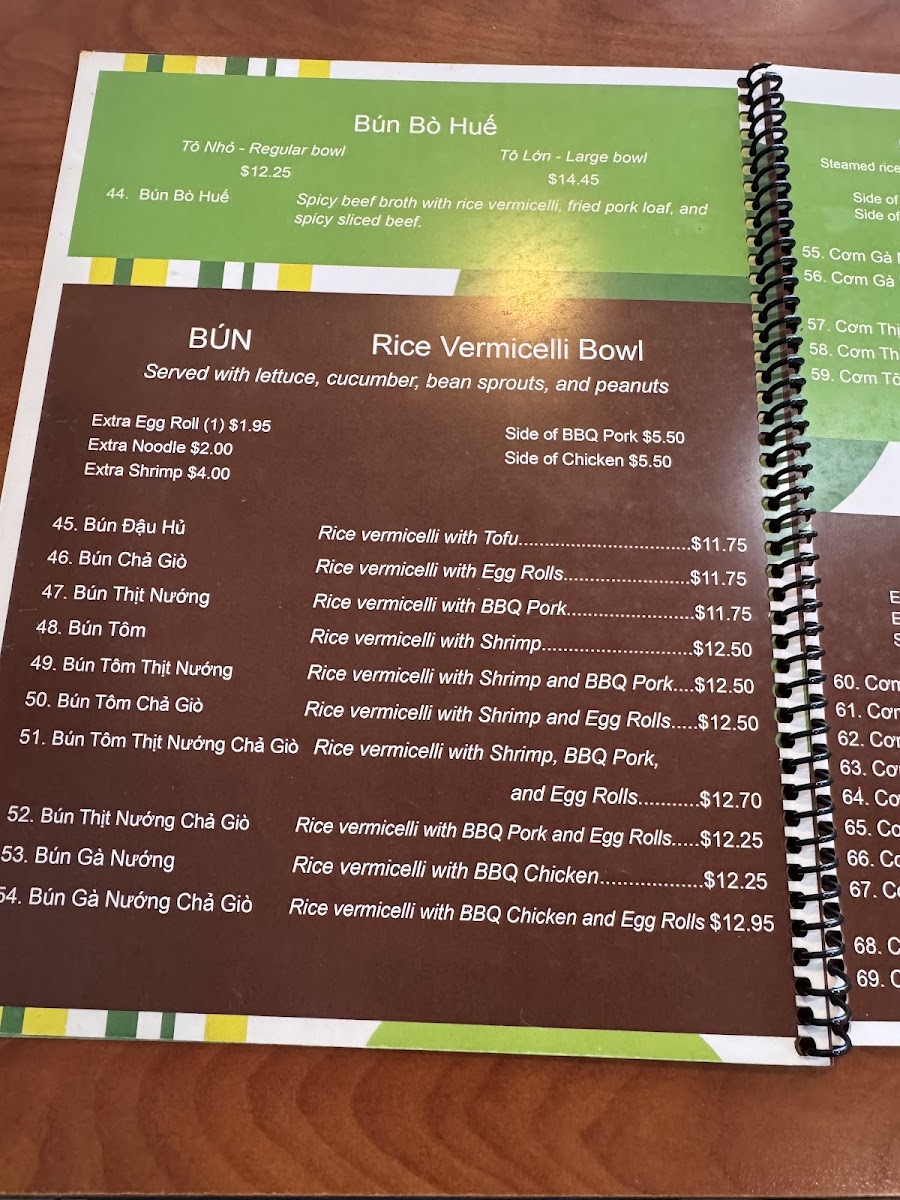 Bún Bò Huế
Tô Nhỏ - Regular bowl Tô Lớn - Large bowl
$12.25 $14.45
44. Bún Bò Huế Spicy beef broth with rice vermicelli, fried pork loaf, and
spicy sliced beef.
BÚN Rice Vermicelli Bowl
Served with lettuce, cucumber, bean sprouts, and peanuts
Extra Egg Roll (1) $1.95 Side of BBQ Pork $5.50
Extra Noodle $2.00 Side of Chicken $5.50
Extra Shrimp $4.00
45. Bún Đậu Hủ Rice vermicelli with Tofu................................$11.75
46. Bún Chả Giò Rice vermicelli with Egg Rolls........................$11.75
47. Bún Thịt Nướng Rice vermicelli with BBQ Pork........................$11.75
48. Bún Tôm Rice vermicelli with Shrimp.............................$12.50
49. Bún Tôm Thịt Nướng Rice vermicelli with Shrimp and BBQ Pork....$12.50
50. Bún Tôm Chả Giò Rice vermicelli with Shrimp and Egg Rolls.....$12.50
51. Bún Tôm Thịt Nướng Chả Giò Rice vermicelli with Shrimp, BBQ Pork,
and Egg Rolls...........$12.70
52. Bún Thịt Nướng Chả Giò Rice vermicelli with BBQ Pork and Egg Rolls.....$12.25
53. Bún Gà Nướng Rice vermicelli with BBQ Chicken...................$12.25
54. Bún Gà Nướng Chả Giò Rice vermicelli with BBQ Chicken and Egg Rolls $12.95
Steamed rice
Side of
Side of
55. Cơm Gà
56. Cơm Gà
57. Cơm
58. Cơm
59. Cơm
60. Cơm
61.
62.
63.
64.
65.
66.
67.
68.
69.